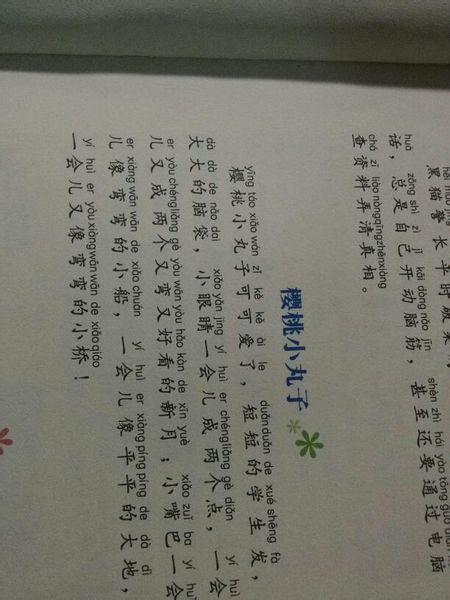 黑猫警长平时破案
huà zǒng shì zì jǐ kāi dòng nǎo jīn shèn zhì hái yào tōng guò diàn
话，总是自己开动脑筋，甚至还要通过电脑
chá zī liào nòngqīngzhēnxiàng
查资料弄清真相。
樱桃小丸子
yīng táo xiǎo wán zǐ kě kě ài le duǎnduǎn de xué shēng fà
樱桃小丸子可可爱了，短短的学生发，
dà dà de nǎo dai xiǎo yǎn jing yí huì er chéngliǎng gè diǎn yí huì
大大的脑袋，小眼睛一会儿成两个点，一会
er yòu chéngliǎng gè yòu wān yòu hǎo kàn de xīn yuè xiǎo zuǐ ba yí huì
儿又成两个又弯又好看的新月；小嘴巴一会
er xiàng wān wān de xiǎo chuán yí huì er xiàng píng píng de dà dì
儿像弯弯的小船，一会儿像平平的大地，
yí huì er yòu xiàng wān wān de xiǎo qiáo
一会儿又像弯弯的小桥！